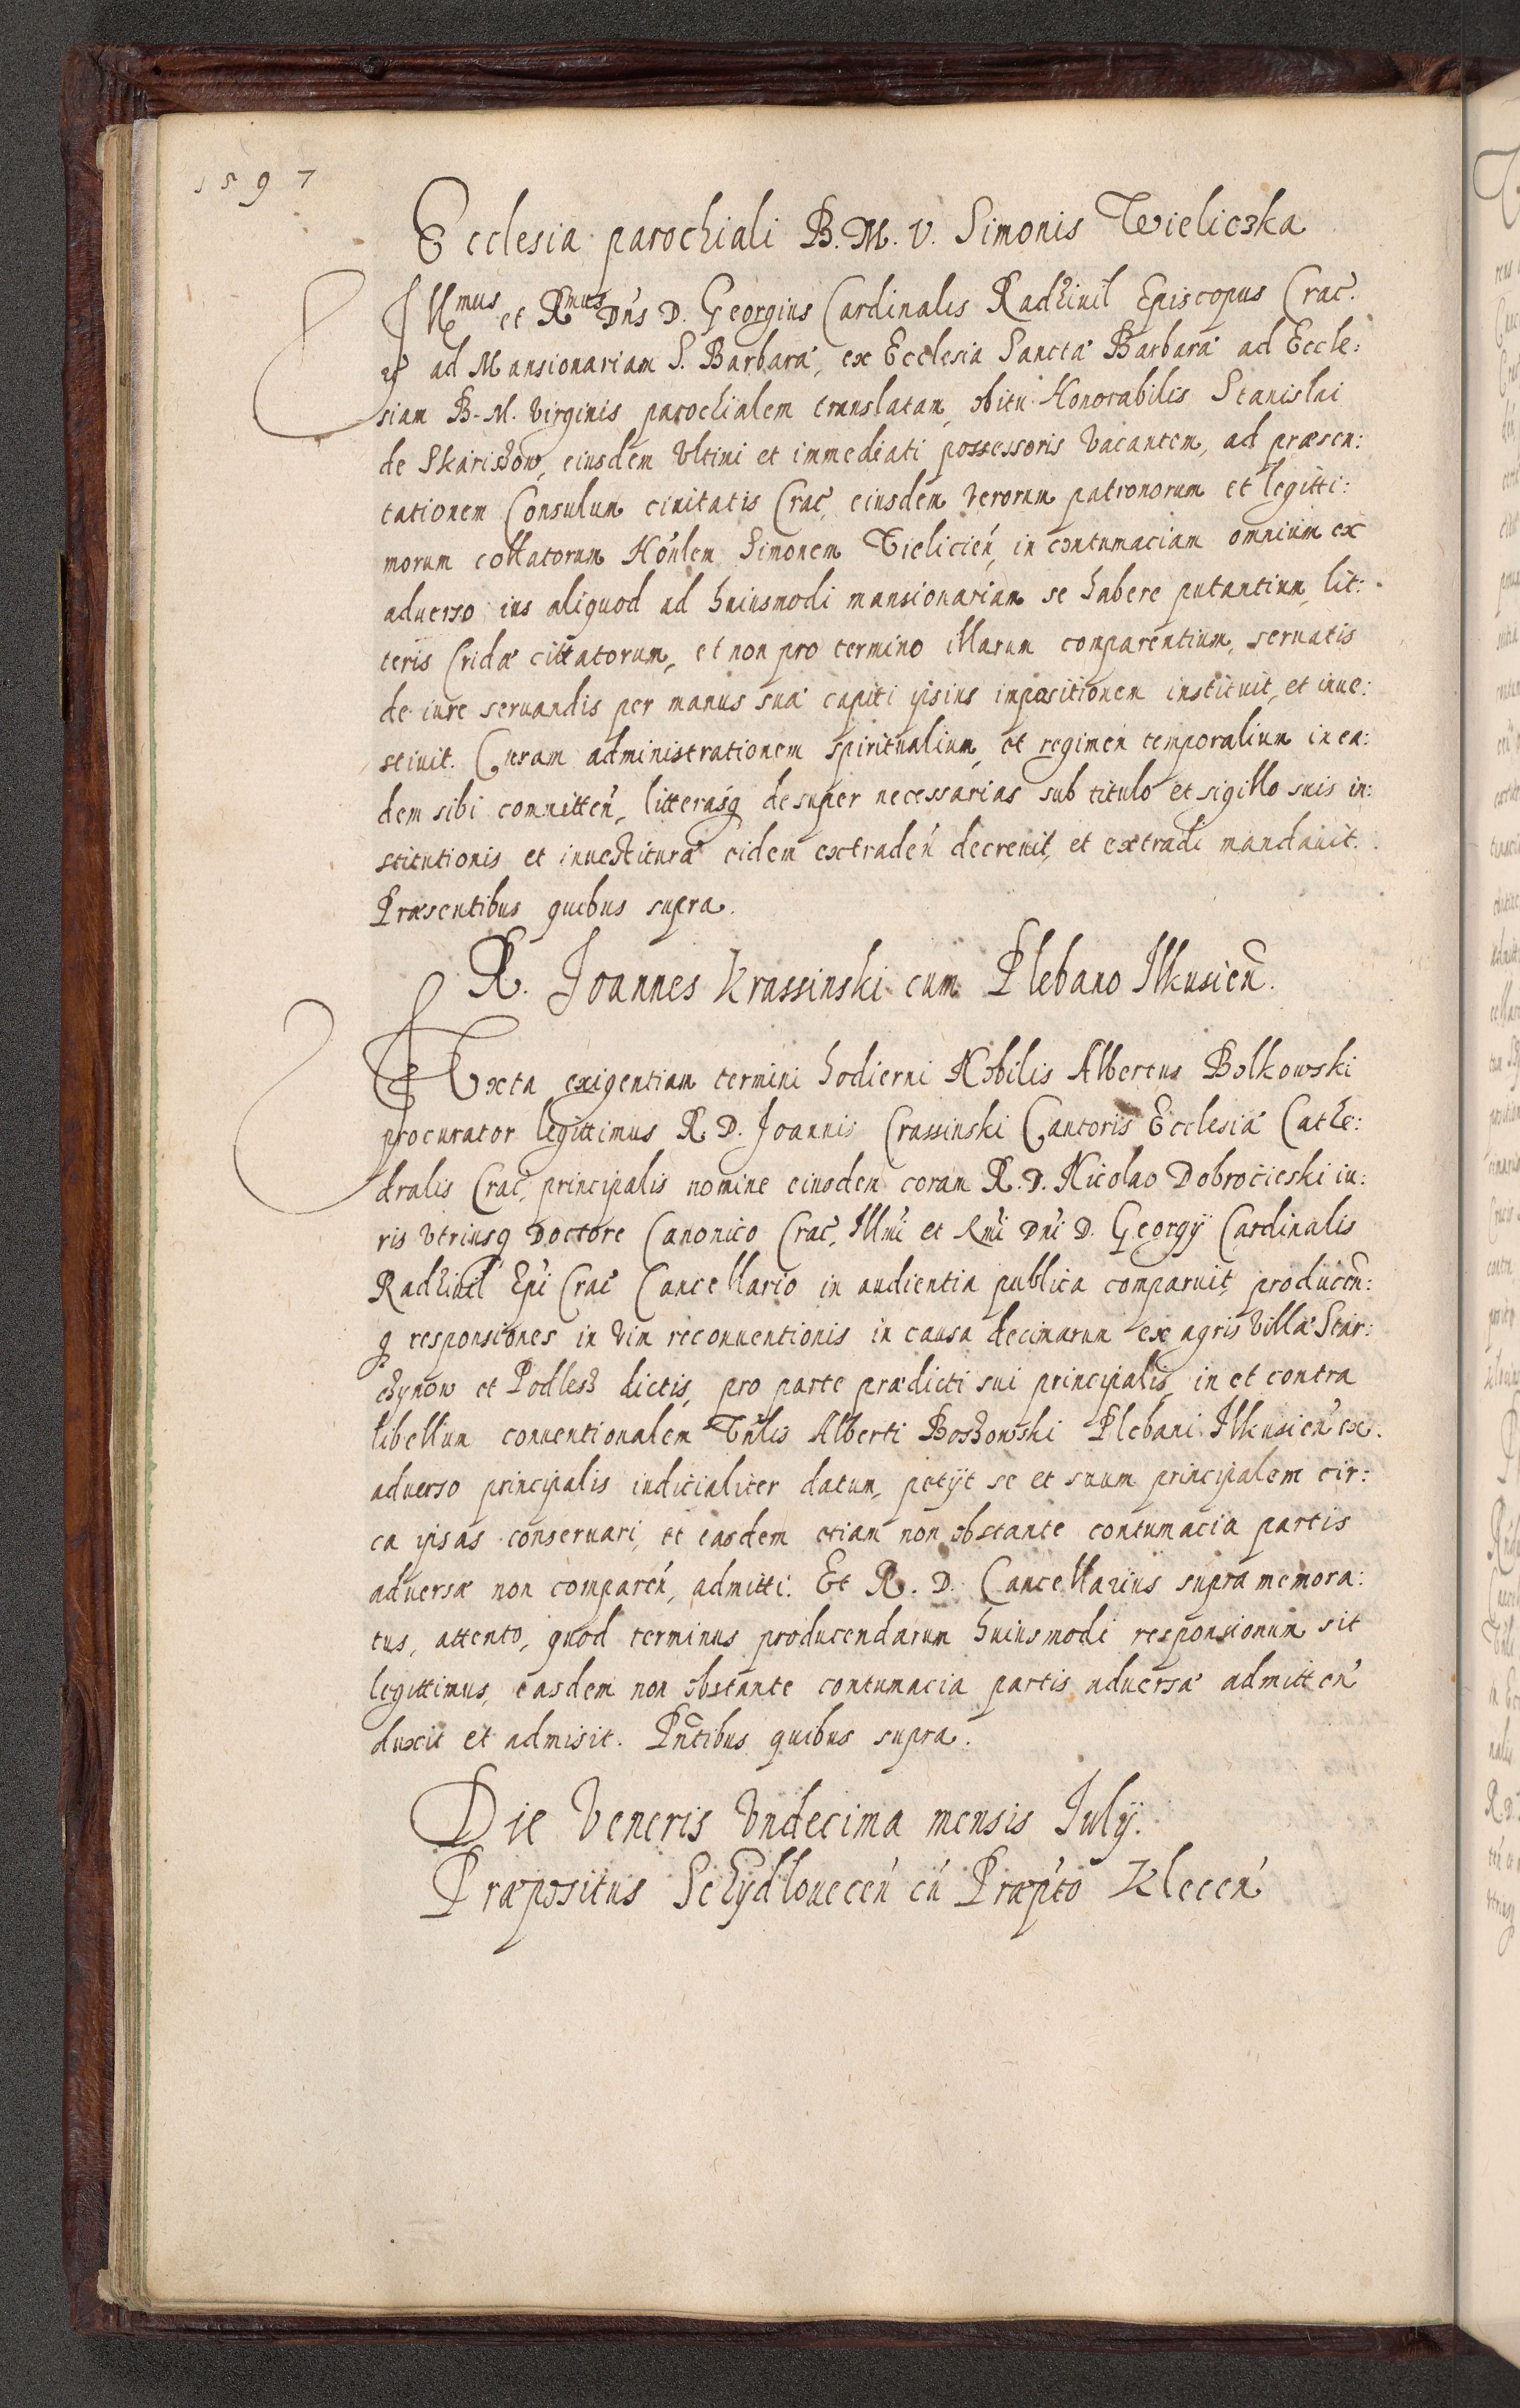 1597
Ecclesia parochiali B. M. V. Simonis Wieliczka
Illmus et Rmus Dns D. Georgius Cardinalis Radziuil Episcopus Crac.
ad Mansionariam S. Barbaræ, ex Ecclesia Sanctæ Barbaræ ad Eccle:
siam B. M. Virginis parochialem translatam, obitu Honorabilis Stanislai
de Skariszow, eiusdem Vltimi et immediati possessoris Vacantem, ad præsen:
tationem Consulum ciuitatis Crac, eiusdem Verorum patronorum et legitti:
morum collatorum Honlem Simonem Vielicien, in contumaciam omnium ex
aduerso ius aliquod ad huiusmodi mansionariam se habere putantium, lit:
teris Cridæ cittatorum, et non pro termino illarum comparentium, seruatis
de iure seruandis per manus suæ capiti ipsius impositionem instituit, et inue:
stiuit. Curam administrationem spiritualium, et regimen temporalium in ea:
dem sibi committen, litterasq desuper necessarias sub titulo et sigillo suis in:
stitutionis et inuestituræ eidem extraden decreuit, et extradi mandauit.
Præsentibus quibus supra.
R. Joannes Krassinski cum Plebano Ilkusien.
Iuxta exigentiam termini hodierni Nobilis Albertus Bolkowski
procurator legittimus R. D. Joannis Crassinski Cantoris Ecclesiæ Cathe:
dralis Crac, principalis nomine eiusdem coram R. D. Nicolao Dobrocieski iu:
ris Vtriusq Doctore Canonico Crac, Illmi et Rmi Dni D. Georgÿ Cardinalis
Radziuil Epi Crac Cancellario in audientia publica comparuit, producen:
q responsiones in Vim reconuentionis in causa decimarum ex agris Villæ Star:
czynow et Podlesz dictis, pro parte prædicti sui principalis, in et contra
libellum conuentionalem Vnlis Alberti Boszowski Plebani Ilkusien ex
aduerso principalis iudicialiter datum, petÿt se et suum principalem cir:
ca ipsas conseruari, et easdem etiam non obstante contumacia partis
aduersæ non comparen, admitti. Et R. D. Cancellarius supra memora:
tus, attento, quod terminus producendarum huiusmodi responsionum sit
legittimus, easdem non obstante contumacia partis aduersæ admitten
duxit et admisit. Pntibus quibus supra.
Die Veneris Vndecima mensis Julÿ.
Præpositus Schydlouecen cu Præpto Klecen